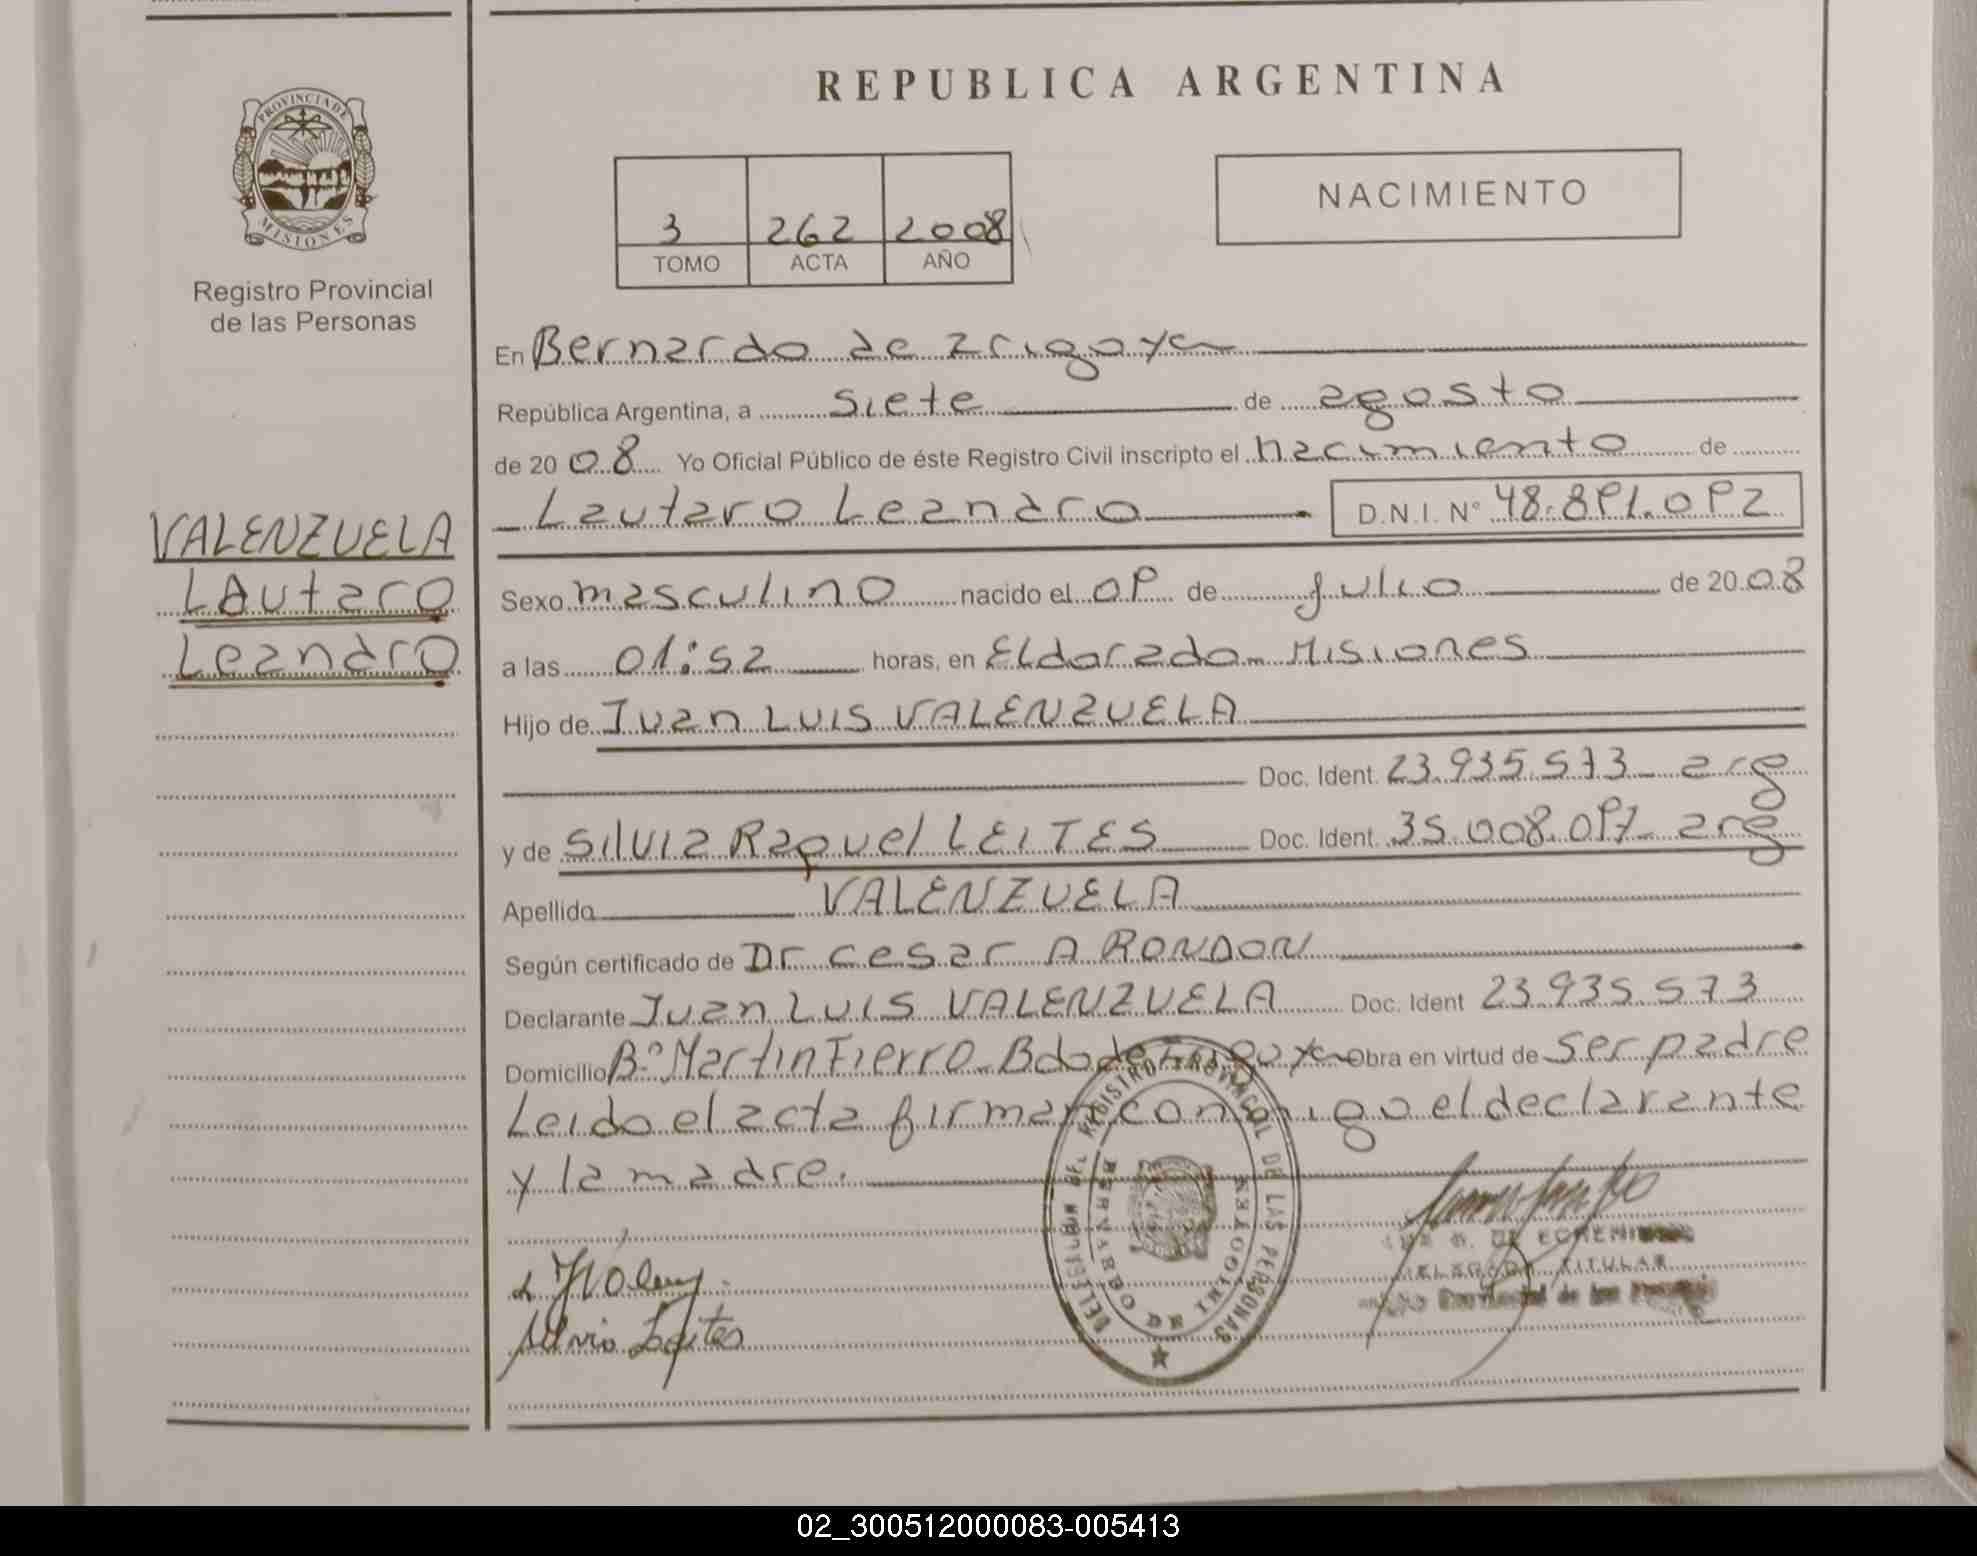 REPUBLICA ARGENTINA
PROVINCIA DE
MISIONES
Registro Provincial
de las Personas
3 262 2008
TOMO ACTA AÑO
NACIMIENTO
En Bernardo de Irigoyen
República Argentina, a siete de agosto
de 20 08 Yo Oficial Público de éste Registro Civil inscripto el nacimiento de
Lautaro Leandro D.N.I. Nº 48.891.092
VALENZUELA
Lautaro
Leandro
Sexo masculino nacido el 09 de julio de 2008
a las 01:52 horas, en Eldorado - Misiones
Hijo de Juan LUIS VALENZUELA
Doc. Ident. 23.935.573 - arg
y de Silvia Raquel LEITES Doc. Ident. 35.008.097 - arg
Apellido VALENZUELA
Según certificado de Dr Cesar A RONDON
Declarante Juan LUIS VALENZUELA Doc. Ident 23.935.573
Domicilio Bº Martin Fierro - Bdo de Irigoyen Obra en virtud de ser padre
Leido el acta firman conmigo el declarante
y la madre.
Silvia Leites
DELEGACION DEL REGISTRO PROVINCIAL DE LAS PERSONAS
BERNARDO DE IRIGOYEN
TITULAR
Provincial de las
02_300512000083-005413